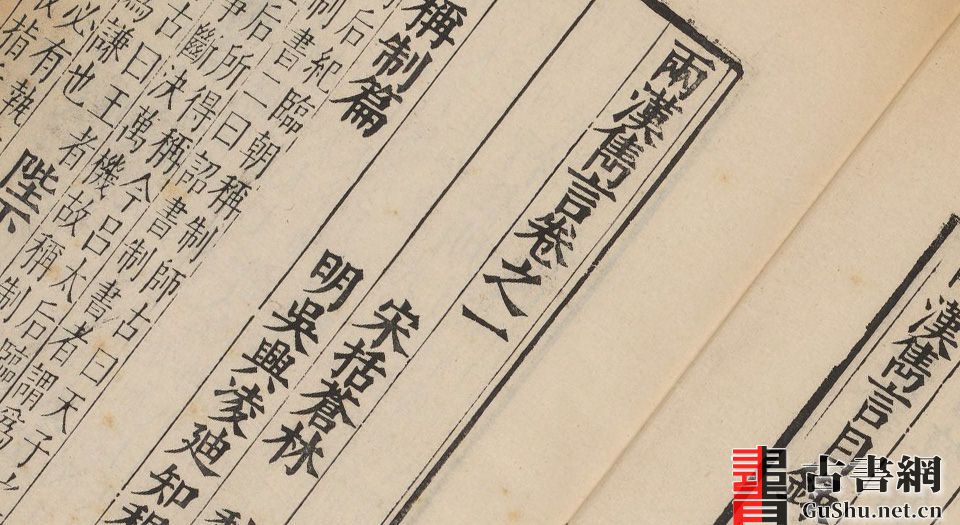 漢雋言目
兩漢雋言卷之一
宋括蒼林
明吳興凌迪知
稱制篇
紀臨朝稱制師古曰天子
書二曰詔書制書者謂爲
后所得稱今呂太后臨
斷決萬機故稱制
古曰王者
爲謙也
必有
指執
陛下
古書網
GuShu.net.cn